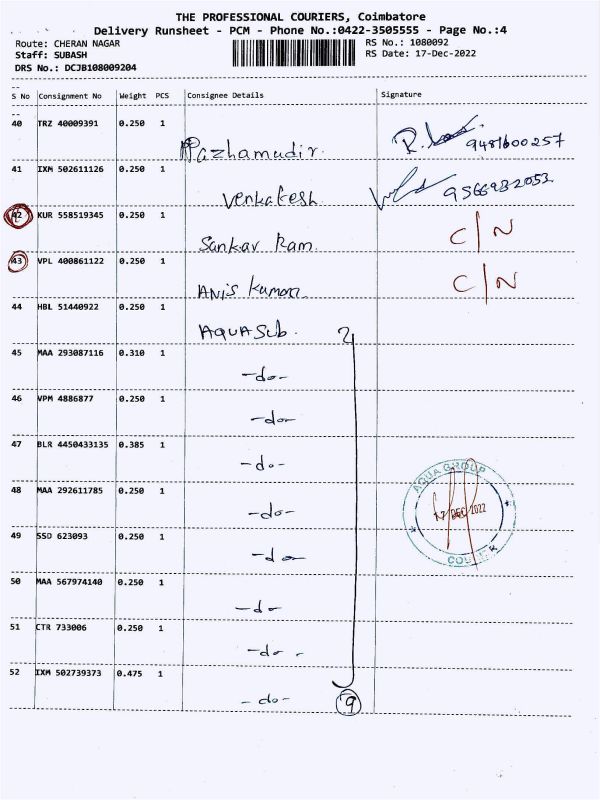 THE PROFESSIONAL COURIERS, Coimbatore
Delivery Runsheet - PCM - Phone No.:0422-3505555 - Page No.:4
Route: CHERAN NAGAR RS No.: 1080092
Staff: SUBASH RS Date: 17-Dec-2022
DRS No.: DCJB108009204
--
S No Consignment No Weight PCS Consignee Details Signature
--
40 TRZ 40009391 0.250 1
Pazhamudir. 9481600257
41 IXM 502611126 0.250 1
Venkatesh 9566932053
42 KUR 558519345 0.250 1
Sankar Ram. C/N
43 VPL 400861122 0.250 1
Anis Kumar. C/N
44 HBL 51440922 0.250 1
AQUA Sub.
45 MAA 293087116 0.310 1
-do-
46 VPM 4886877 0.250 1
-do-
47 BLR 4450433135 0.385 1
-do-
48 MAA 292611785 0.250 1
-do-
AQUA GROUP
17 DEC 2022
COURIER
49 SSD 623093 0.250 1
-do-
50 MAA 567974140 0.250 1
-do-
51 CTR 733006 0.250 1
-do-
52 IXM 502739373 0.475 1
-do- 9